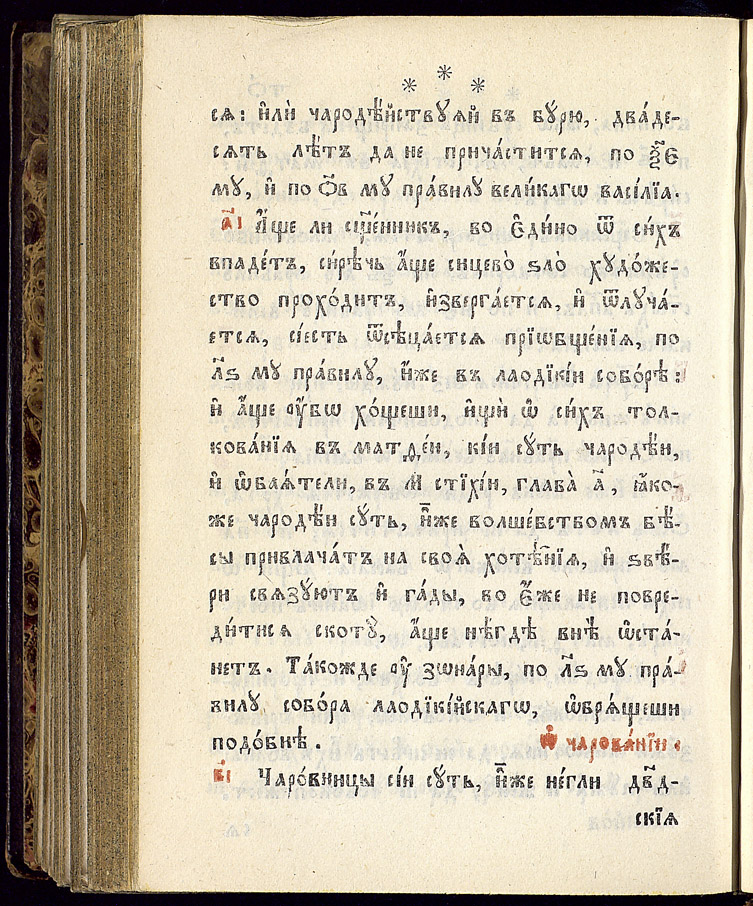 * * *
сѧ: и҆лѝ чародѣ́йствꙋѧй въ бꙋ́рю, два́де-
сѧть лѣ́тъ да не прича́стится, по ѯ҃є
мꙋ, и҆ по ѻ҃в мꙋ пра́вилꙋ вели́кагѡ васі́лїа.
а҃і А҆́ще ли сщ҃е́нникъ, во є҆ди́но ѿ си́хъ
впаде́тъ, си́рѣчь а҆́ще сицево̀ ѕло̀ хꙋдо́же-
ство прохо́дитъ, и҆зверга́ется, и҆ ѿлꙋча́-
ется, сі́есть ѿсѣца́ется прїѡбще́нїѧ, по
л҃ѕ мꙋ пра́вилꙋ, и҆́же въ лаодїкі́и собо́рѣ:
и҆ а҆́ще ᲂу҆́бѡ хо́щеши, и҆щѝ ѡ҆ си́хъ тол-
кова́нїѧ въ матѳе́и, кі́и сꙋ́ть чародѣ́и,
и҆ ѡ҆баѧ́тели, въ м҃ стїхі́и, глава̀ а҃, ꙗ҆́ко-
же чародѣ́и сꙋ́ть, и҆̀же волше́бствомъ бѣ́-
сы привлача́тъ на своѧ̀ хотѣ̑нїѧ, и҆ ѕвѣ́-
ри свѧзꙋ́ютъ и҆ га́ды, во є҆́же не повре-
ди́тисѧ скотꙋ̀, а҆́ще нѣ́гдѣ внѣ̀ ѡ҆ста́-
нетъ. Та́кожде ᲂу҆ зѡна́ры, по л҃ѕ мꙋ пра́-
вилꙋ собо́ра лаодїкі́йскагѡ, ѡ҆брѧ́щеши
подо́бнѣ. Ѡ҆ чарова́нїи.
в҃і Чаро́вницы сі́и сꙋ́ть, и҆̀же не́гли дв҃д-
скїѧ